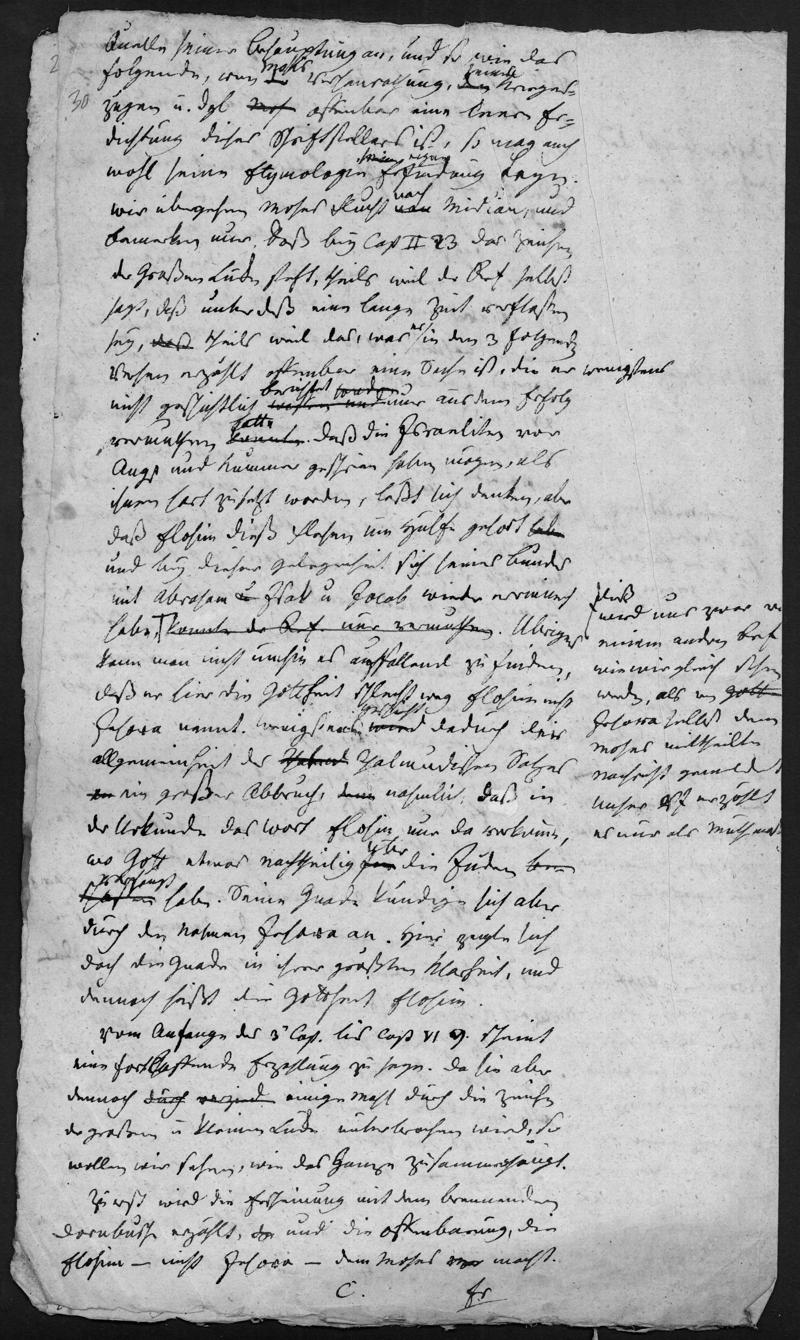 2
30
Quelle seiner Behauptung an, und so wie das
folgende, von Moses Verheurathung, Krieges-
zügen u. dgl offenbar eine leere Er-
dichtung dieses Schriftstellers ist, so mag auch
wohl seine Etymologie seine eigene Erfindung seyn.
Wir übergehen Moses Flucht nach Midian, und
bemerken nur, daß bey Cap II 23 das Zeichen
der großen Lücke steht, theils weil der Ref selbst
sagt, daß unterdeß eine lange Zeit verflossen
sey, theils weil das, was er in den 3 folgenden
Versen erzählt offenbar eine Sache ist, die er wenigstens
nicht geschichtlich berichtet sondern nur aus dem Erfolg
vermuthen konnte. daß die Israeliten vor
Angst und Kummer geschrien haben mögen, als
ihnen hart zugesetzt worden, läßt sich denken, aber
daß Elohim dieß Flehen um Hülfe gehört
und bey dieser Gelegenheit sich seines Bundes
mit Abraham Isak u Jacob wieder erinnert
habe, konnte der Ref. nur vermuthen. Uibrigens
kann man nicht umhin es auffallend zu finden,
daß er hier die Gottheit schlecht weg Elohim nicht
Jehova nennt. Wenigstens geschieht dadurch der
allgemeinheit des Talmudischen Satzes
ein großer Abbruch, nahmlich, daß in
der Urkunde das Wort Elohim nur da vorkomme,
wo Gott etwas nachtheiliges über die Juden
verhängt habe. Seine Gnade kündige sich aber
durch den Nahmen Jehova an. Hier zeigte sich
doch die Gnade in ihrer größten Klarheit, und
dennoch heißt die Gottheit Elohim.
Vom Anfange des 3 Cap. bis Cap VI 9. scheint
eine fortlaufende Erzählung zu seyn. Da sie aber
dennoch einige Mahl durch die Zeichen
der großen u kleinen Lücke unterbrochen wird, so
wollen wir sehen, wie das Ganze zusammenhängt.
Zuerst wird die Erscheinung mit dem brennenden
Dornbusche erzählt, und die Offenbarung, die
Elohim — nicht Jehova — dem Moses macht.
C. Er
dieß
wird uns zwar
einem andern Ref
wie wir gleich sehen
werden, als von Gott
Jehova selbst dem
Moses mittheilte
Nachricht gemeldet
unser Ref erzählt
es nur als